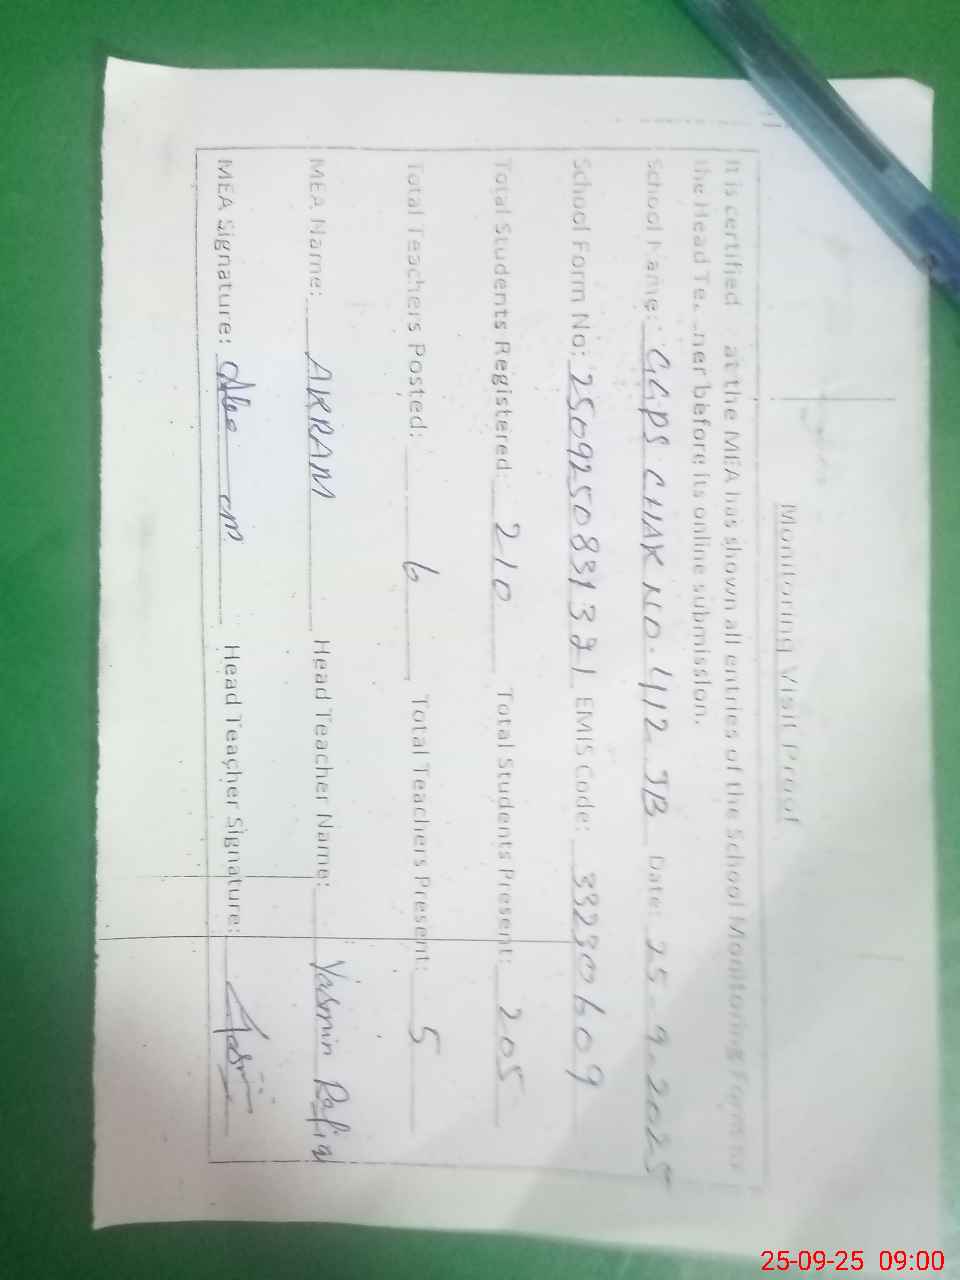 Monitoring Visit Proof
It is certified at the MEA has shown all entries of the School Monitoring Form to
the Head Te. ner before its online submission.
School Name: GGPS CHAK NO. 412 JB Date: 25-9-2025
School Form No: 25092508313 21 EMIS Code: 33230609
Total Students Registered: 210 Total Students Present: 205
Total Teachers Posted: 6 Total Teachers Present: 5
MEA Name: AKRAM Head Teacher Name: Yasmin Rafiq
MEA Signature: Head Teacher Signature:
25-09-25 09:00